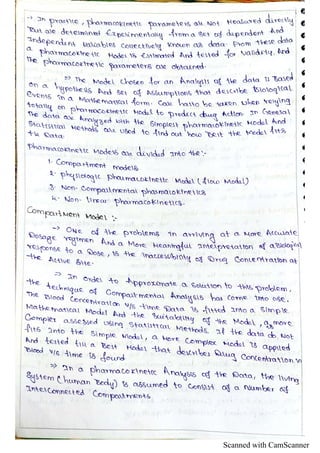 → In practise, pharmacokinetic parameters are not measured directly
But are determined Experimentally from a set of dependent And
Independent variables collectively known as data. From these data
a pharmacokinetic Model is Estimated And tested for validity, And
the pharmacokinetic parameters are obtained.
⇒ The Model chosen for an Analysis of the data is Based
on a hypothesis And set of Assumptions that describe Biological
Events in a Mathematical form. Care has to be taken when relying
totally on pharmacokinetic Model to predict drug Action. In General
the data are Analyzed with the Simplest pharmacokinetic Model And
Statistical Methods are used to find out how Best the Model fits
the Data.
pharmacokinetic Models are divided into the:-
1. Compartment models
2. physiologic pharmacokinetic Model (flow Model)
3. Non-Compartmental pharmacokinetics
4. Non-linear pharmacokinetics.
Compartment Model :-
→ One of the problems in arriving at a More Accurate
Dosage regimen And a More Meaningful Interpretation of a Biological
response to a Dose, is the Inaccessibility of Drug Concentration at
the Active Site.
⇒ In order to Approximate a Solution to this problem,
the technique of Compartmental Analysis has come into use.
The Blood Concentration v/s time Data is fitted into a Simple
Mathematical Model And the Suitability of the Model, or more
Complex assessed using Statistical Methods. If the data do Not
fits into the Simple Model, a More Complex Model is Applied
And tested till a Best Model that describes Drug Concentration in
Blood v/s time is found
⇒ In a pharmacokinetic Analysis of the Data, the living
System (human Body) is assumed to Consist of a Number of
Interconnected Compartments.
Scanned with CamScanner